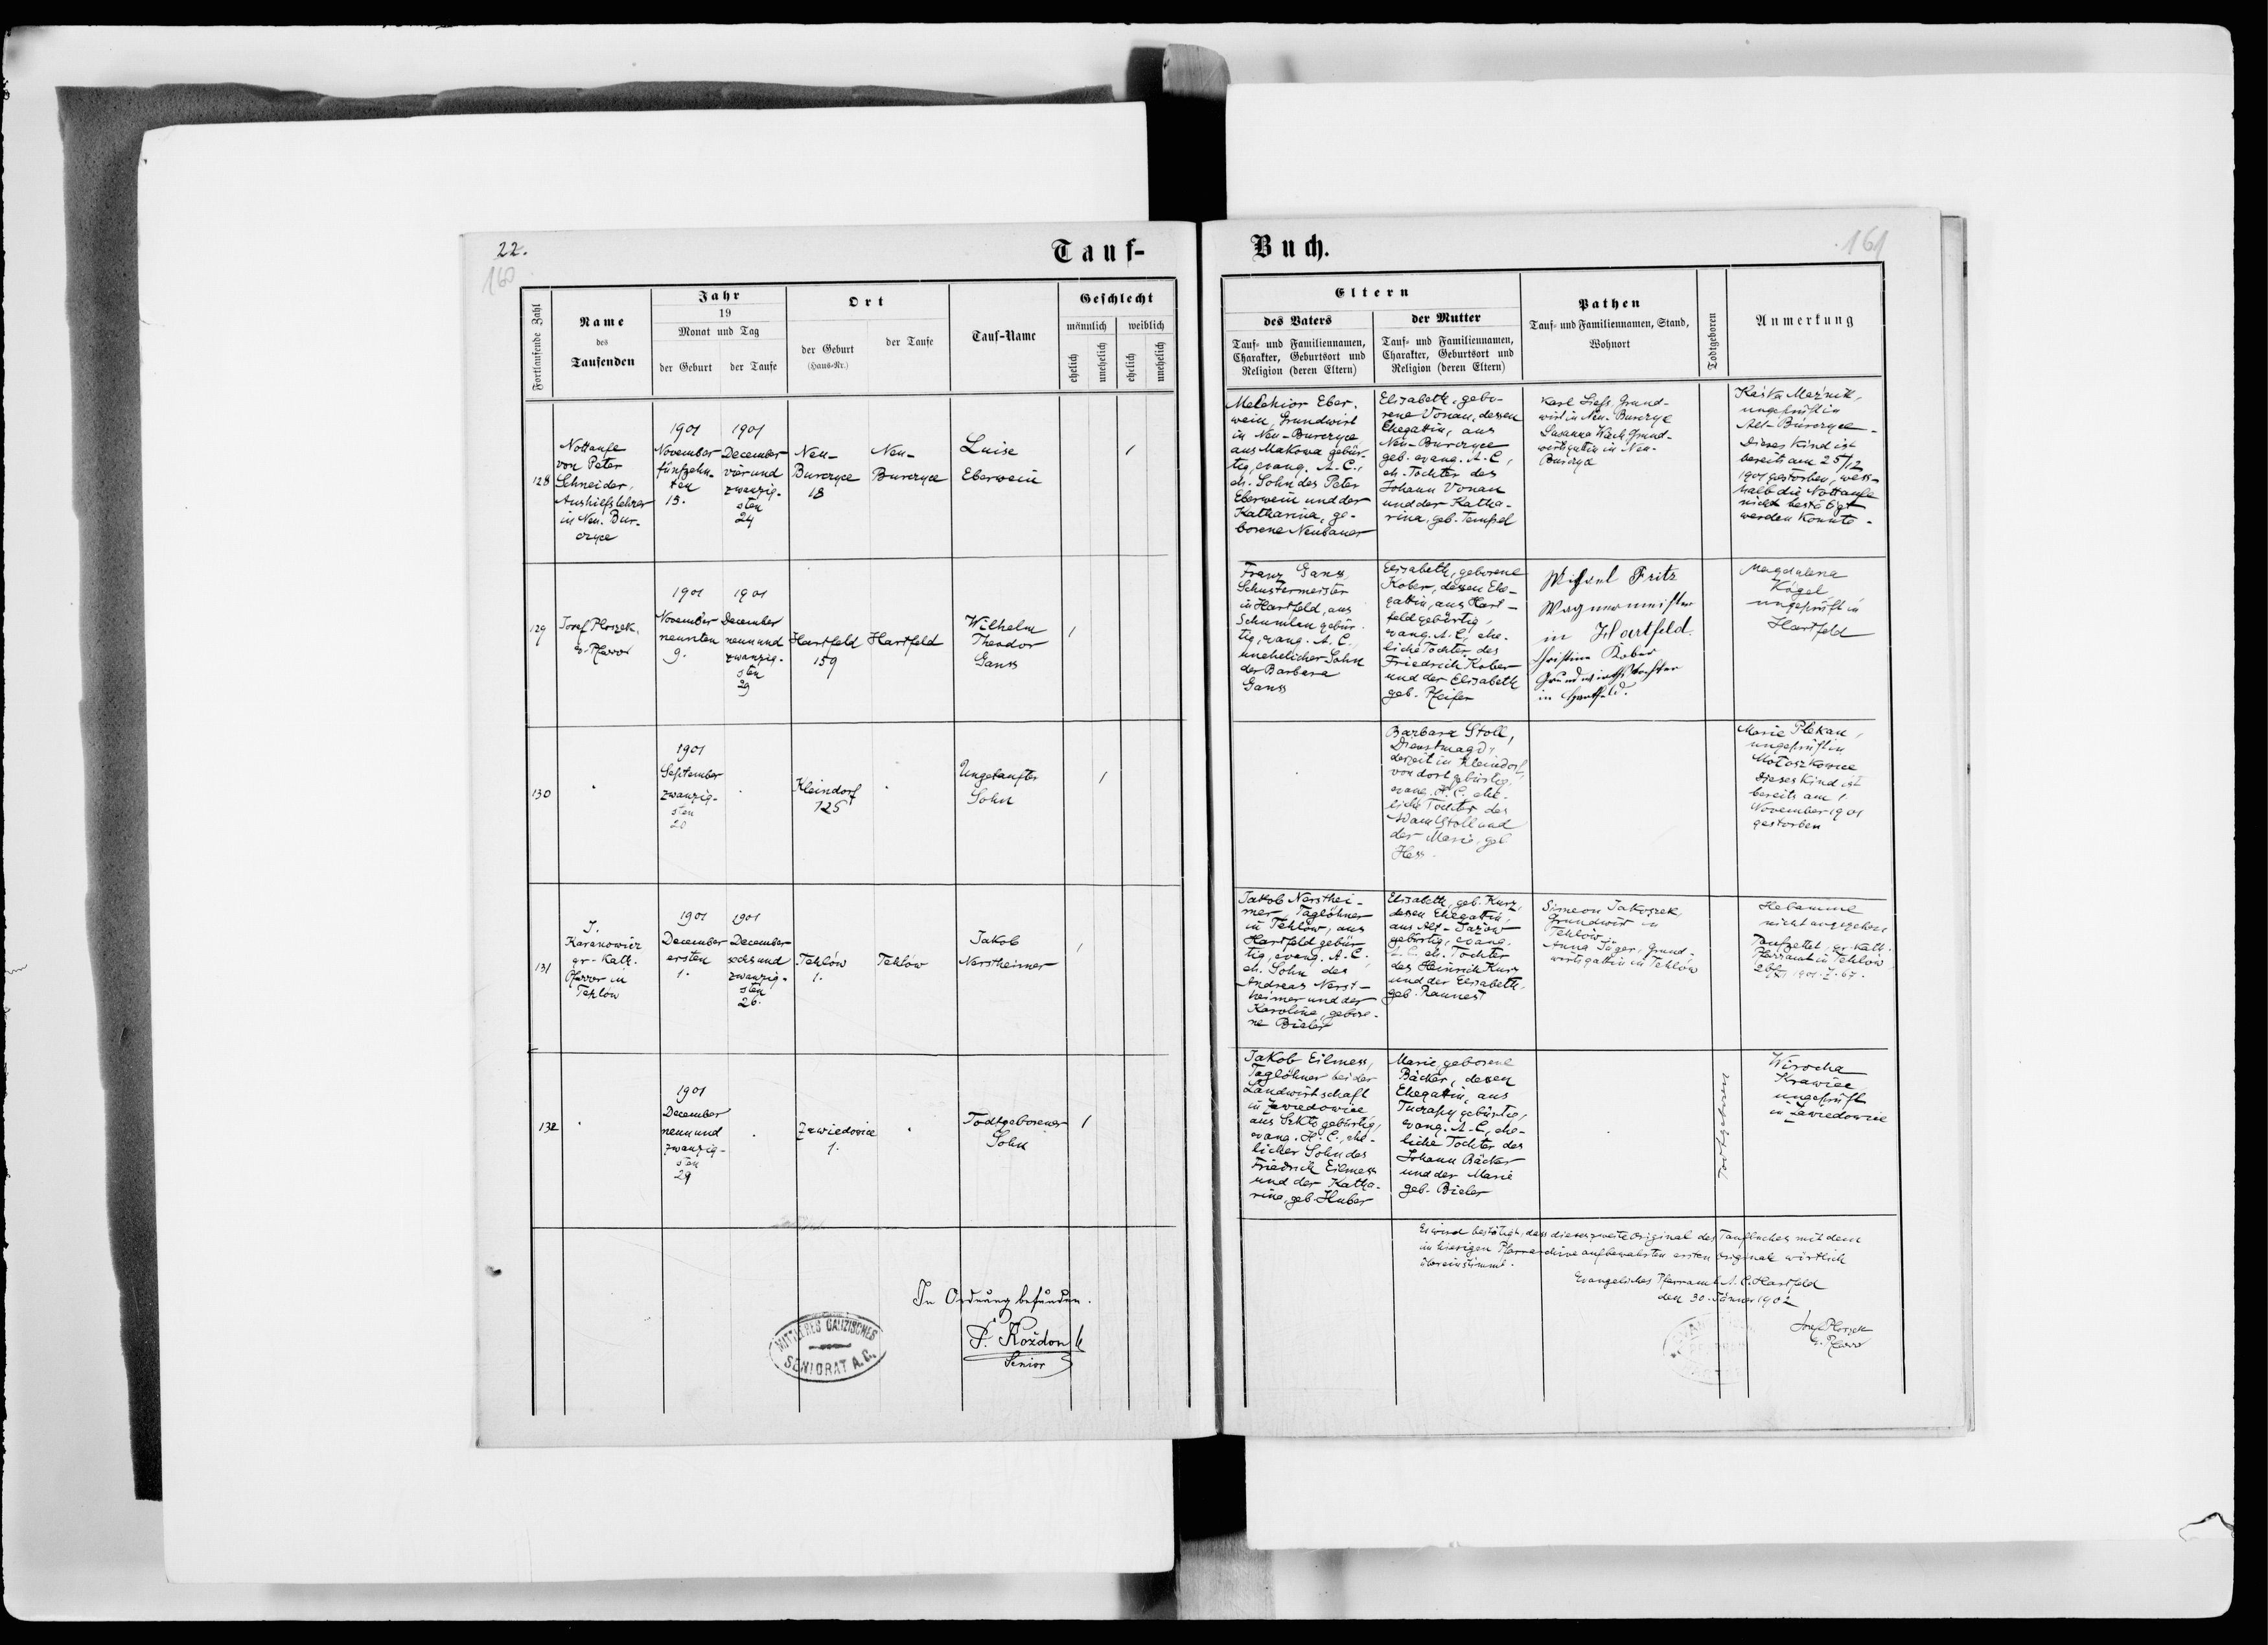 22.
160
Tauf-
Fortlaufende Zahl
Name
des
Taufenden
Jahr
19
Monat und Tag
der Geburt
der Taufe
Ort
der Geburt
(Haus-Nr.)
der Taufe
Tauf-Name
Geschlecht
männlich
weiblich
ehelich
unehelich
ehelich
unehelich
128
Nottaufe
von Peter
Schneider,
Aushilfslehrer
in Neu-Bur-
czyce
1901
November
fünfzehn-
ten
15.
1901
December
vierund
zwanzig-
sten
24
Neu-
Burczyce
18
Neu-
Burczyce
Luise
Eberwein
1
129
Josef Ploszek,
ev. Pfarrer
1901
November
neunten
9.
1901
December
neunund
zwanzig-
sten
29
Hartfeld
159
Hartfeld
Wilhelm
Theodor
Ganss
1
130
1901
September
zwanzig-
sten
20
Kleindorf
125
Ungetaufter
Sohn
1
131
J.
Karanowicz
gr-Kath.
Pfarrer in
Tehlów
1901
December
ersten
1.
1901
December
sechsund
zwanzig-
sten
26.
Tehlów
1.
Tehlów
Jakob
Nerstheimer
1
132
1901
December
neunund
zwanzig-
sten
29
Zawiedowice
1.
Todtgeborener
Sohn
1
In Ordnung befunden.
P. Kożdon
Senior
MITTLERES GALIZISCHES
SENIORAT A. C.
Buch.
161
Eltern
des Vaters
Tauf- und Familiennamen,
Charakter, Geburtsort und
Religion (deren Eltern)
der Mutter
Tauf- und Familiennamen,
Charakter, Geburtsort und
Religion (deren Eltern)
Pathen
Tauf- und Familiennamen, Stand,
Wohnort
Todtgeboren
Anmerkung
Melchior Eber-
wein, Grundwirt
in Neu-Burczyce,
aus Makowa gebür-
tig, evang. A. C.,
eh. Sohn des Peter
Eberwein und der
Katharina, ge-
borene Neubauer
Elisabeth, gebo-
rene Vonau, dessen
Ehegattin, aus
Neu-Burczyce
geb. evang. A. C,
eh. Tochter des
Johann Vonau
und der Katha-
rina, geb. Tempel
Karl Grund-
wirt in Neu-Burczyce
Susanna Grund-
wirtsgattin in Neu-
Burczyce
ungeprüft in
Alt-Burczyce -
Dieses Kind ist
bereits am 25/12
1901 gestorben, wess-
halb die Nottaufe
nicht bestätigt
werden konnte -
Franz Ganss,
Schustermeister
in Hartfeld, aus
Schumlau gebür-
tig, evang. A. C.,
unehelicher Sohn
der Barbara
Ganss
Elisabeth, geborene
Kober, dessen Ehe-
gattin, aus Hart-
feld gebürtig,
evang. A. C, ehe-
liche Tochter des
Friedrich Kober
und der Elisabeth
geb. Pfeifer
Michael Fritz
Wagnermeister
in Hartfeld.
Christina Kober
Grundwirthstochter
in Hartfeld.
Magdalena
Kögel
ungeprüft in
Hartfeld
Barbara Stoll,
Dienstmagd,
derzeit in Kleindorf,
von dort gebürtig,
evang. H. C. ehe-
liche Tochter des
Adam Stoll und
der Marie, geb
Hess.
Marie Plekan,
ungeprüft in
Motoszkowce
Dieses Kind ist
bereits am 1.
November 1901
gestorben
Jakob Nersthei-
mer, Taglöhner
in Tehlów, aus
Hartfeld gebür-
tig, evang. A. C.
eh. Sohn des
Andreas Nerst-
heimer und der
Karoline, gebore-
ne Bieler
Elisabeth, geb. Kurz,
dessen Ehegattin,
aus Alt-Jazow
gebürtig, evang.
A. C. eh. Tochter
des Heinrich Kurz
und der Elisabeth
geb.
Simeon Jakoszek,
Grundwirt in
Tehlów -
Anna Jäger, Grund-
wirtsgattin in Tehlów
Hebamme
nicht angegeben
Taufzettel, gr-Kath.
Pfarramt in Tehlów
1901. Z. 67.
Jakob Eilmess,
Taglöhner bei der
Landwirtschaft
in Zawiedowice
aus Szkło gebürtig,
evang. H. C., ehe-
licher Sohn des
Friedrich Eilmess
und der Katha-
rina, geb. Huber
Marie, geborene
Bäcker, dessen
Ehegattin, aus
Tuczapy gebürtig,
evang. A. C, ehe-
liche Tochter des
Johann Bäcker
und der Marie
geb. Bieler
Todtgeboren
Wirocha
Krawiec
ungeprüft
in Zawiedowice
Es wird bestätigt, dass dieses zweite Original des Taufbuches mit dem
im hiesigen Pfarrarchive aufbewahrten ersten Originale wörtlich
übereinstimmt.
Evangelisches Pfarramt A. C. Hartfeld
den 30. Jänner 1902
Josef Ploszek
ev. Pfarrer